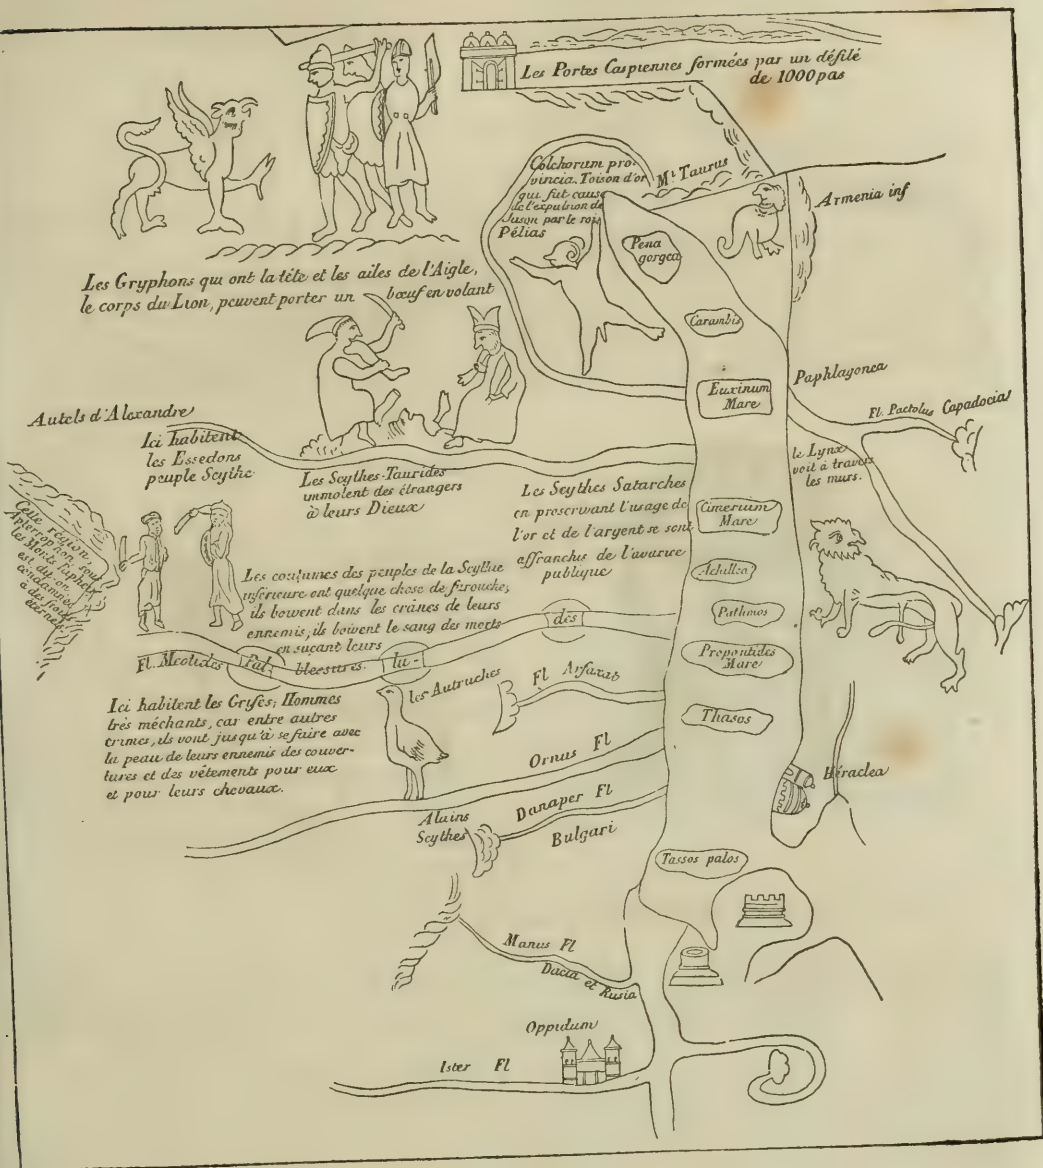 Les Portes Caspiennes formées par un défilé
de 1000 pas
Colchorum pro-
vincia. Toison d'or
qui fut cause
de l'expulsion de
Jason par le roi
Pélias
Mt Taurus
Armenia inf
Pena
gorgea
Les Gryphons qui ont la tête et les ailes de l'Aigle,
le corps du Lion, peuvent porter un bœuf en volant
Carambis
Euxinum
Mare
Paphlagonea
Fl. Pactolus Capadocia
Autels d'Alexandre
Ici habitent
les Essedons
peuple Scythe
Les Scythes-Taurides
immolent des étrangers
à leurs Dieux
le Lynx
voit à travers
les murs.
Les Scythes Satarches
en proscrivant l'usage de
l'or et de l'argent se sont
affranchis de l'avarice
publique
Cimerium
Mare
Cette région,
Apterophon sous
les Monts Riphées
est dit-on
condamnée
à des froids
éternels
Achillea
Les coutumes des peuples de la Scythie
inférieure ont quelque chose de farouche;
ils boivent dans les crânes de leurs
ennemis, ils boivent le sang des morts
en suçant leurs
blessures.
Pathmos
Propontides
Mare
Fl. Meotides
Pal-
lu-
des
les Autruches
Fl Arfaxat
Thasos
Ici habitent les Grifes; Hommes
très méchants, car entre autres
crimes, ils vont jusqu'à se faire avec
la peau de leurs ennemis des couver-
tures et des vêtements pour eux
et pour leurs chevaux.
Ornus Fl
Héraclea
Danaper Fl
Alains
Scythes
Bulgari
Tassos palos
Manus Fl
Dacia et Rusia
Oppidum
Ister Fl